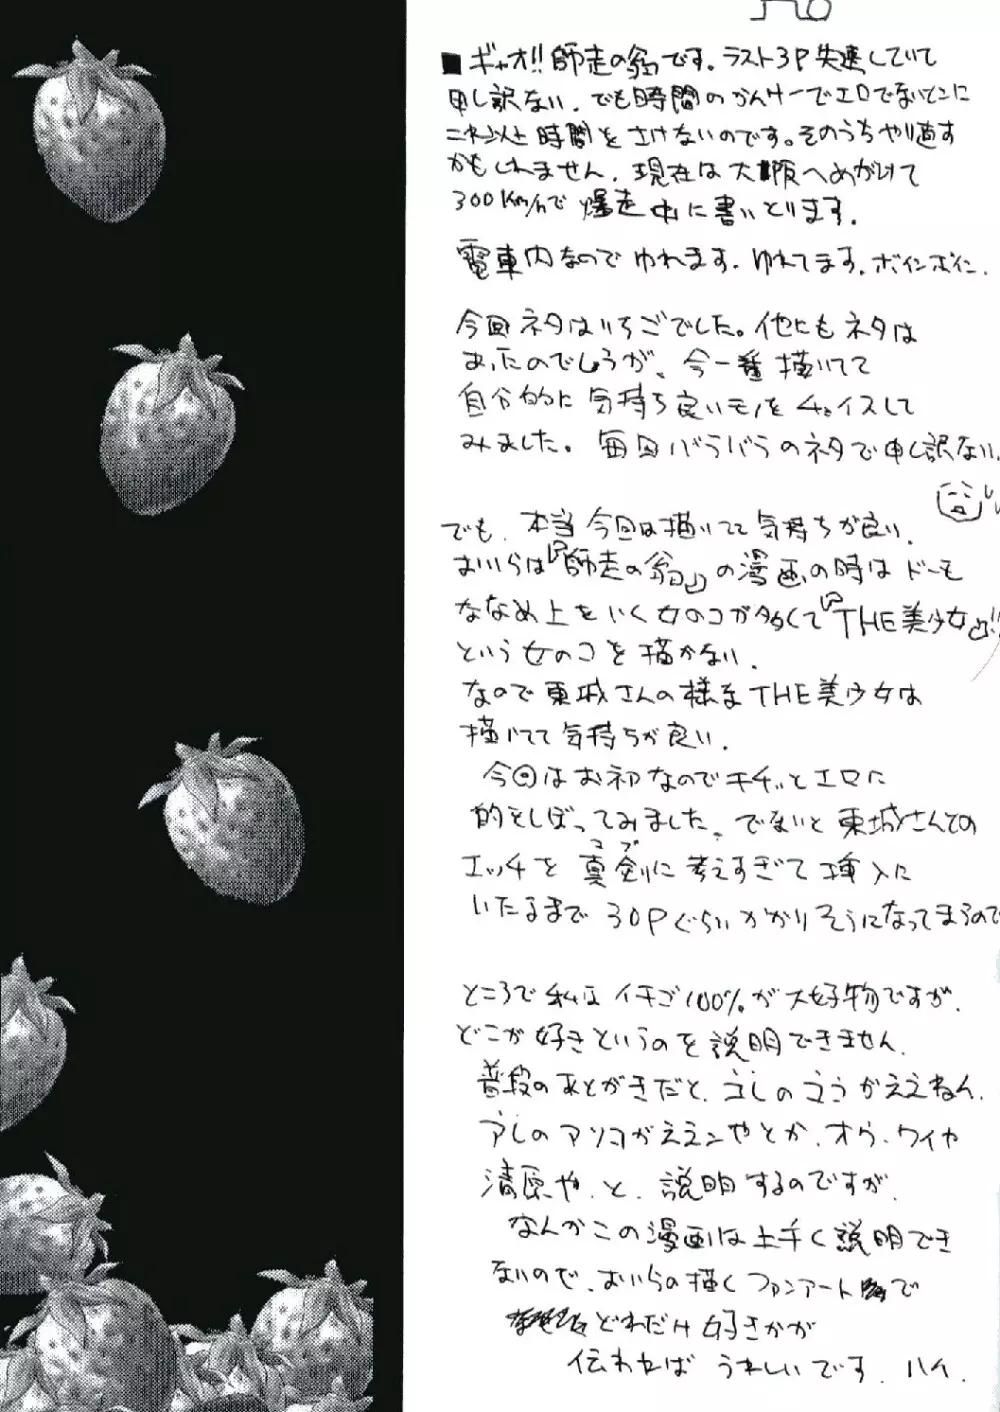 ■ギャオ!!師走の翁です。ラスト3P失速していて
申し訳ない。でも時間のかんけーでエロでないとこに
時間をさけないのです。そのうちやり直す
かもしれません。現在は大阪へめがけて
300Km/hで爆走中に書いとります。
電車内なのでゆれます。ゆれてます。ボインボイン。
今回ネタはいちごでした。他にもネタは
あったのでしょうが、今一番描いてて
自分的に気持ち良いモノをチョイスして
みました。毎回バラバラのネタで申し訳ない。
でも、本当今回は描いてて気持ちが良い。
おいらは『師走の翁』の漫画の時はドーモ
ななめ上をいく女のコが多くて『THE美少女』!!
という女のコを描かない。
なので東城さんの様なTHE美少女は
描いてて気持ちが良い。
今回はお初なのでキチッとエロに
的をしぼってみました。でないと東城さんでの
エッチを真剣に考えすぎて挿入に
いたるまで30Pぐらいかかりそうになってまうので
ところで私はイチゴ100%が大好物ですが、
どこが好きというのを説明できません。
普段のあとがきだと、コレのココがええねん。
アレのアソコがええンやとか、オウ、ワイや
清原や、と、説明するのですが、
なんかこの漫画は上手く説明でき
ないので、おいらの描くファンアートで
どれだけ好きかが
伝われば うれしいです。ハイ。